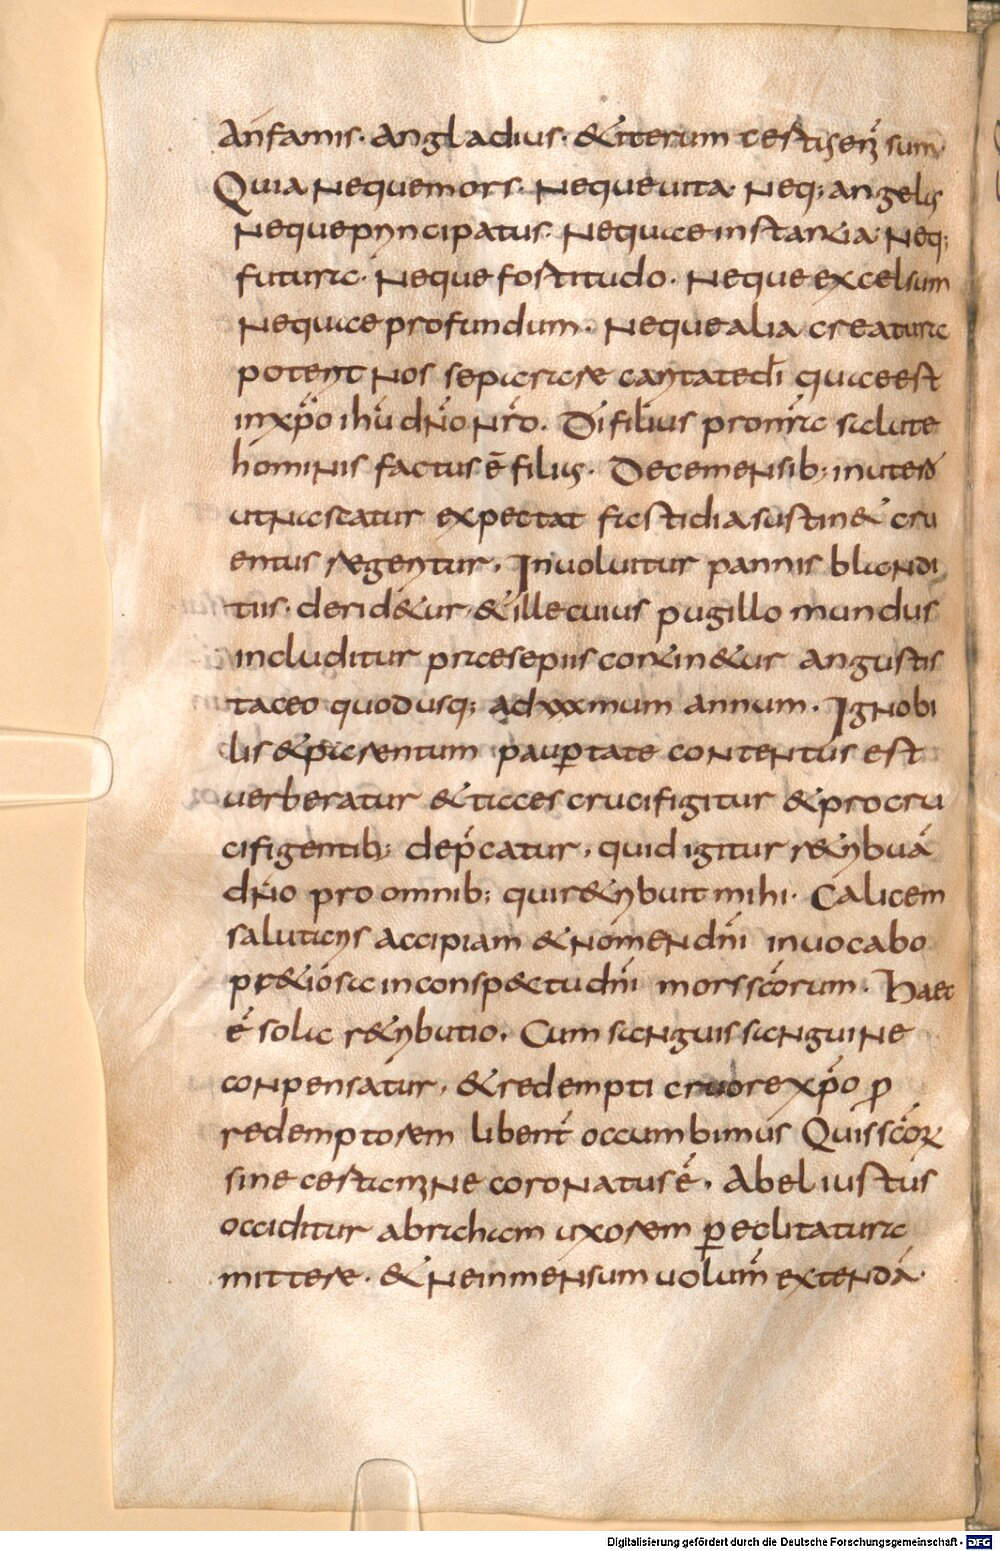 an famis. an gladius. & iterum certus enī sum.
Quia neque mors. neque uita. neq; angelus
neque principatus. neque instantia. neq;
futura. neque fortitudo. neque excelsum
neque profundum. neque alia creatura
poterit nos separare caritate dī quae est
in xp̄o ihū dn̄o nr̄o. Dī filius pro nr̄a salute
hominis factus ē filius. Decem ensib; in utero
ut nascatur expectat fastidia sustin& cru
entus regeritur. Inuoluitur pannis blandi
tiis. derid&ur & ille cuius pugillo mundus
includitur praesepiis contin&ur angustiis
taceo quod usq; ad xxx mum annum. Ignobi
lis & parentum paup̄tate contentus est
uerberatur & tacces crucifigitur & pro cru
cifigentib; dep̄catur. quid igitur r&ribuā
dn̄o pro omnib; qui r&ribuit mihi. Calicem
salutaris accipiam & nomen dn̄i inuocabo
pr&iosa in conspectu dn̄i mors sc̄orum. Haec
ē sola r&ributio. Cum sanguis sanguine
conpensatur. & redempti cruore xp̄o ꝓ
redemptorem libent̄ occumbimus Quis sc̄oꝝ
sine certamine coronatus ē. Abel iustus
occiditur abraham uxorem p̄eclitatur a
mittere. & ne inmensum uolum̄ extendā.
Digitalisierung gefördert durch die Deutsche Forschungsgemeinschaft - DFG